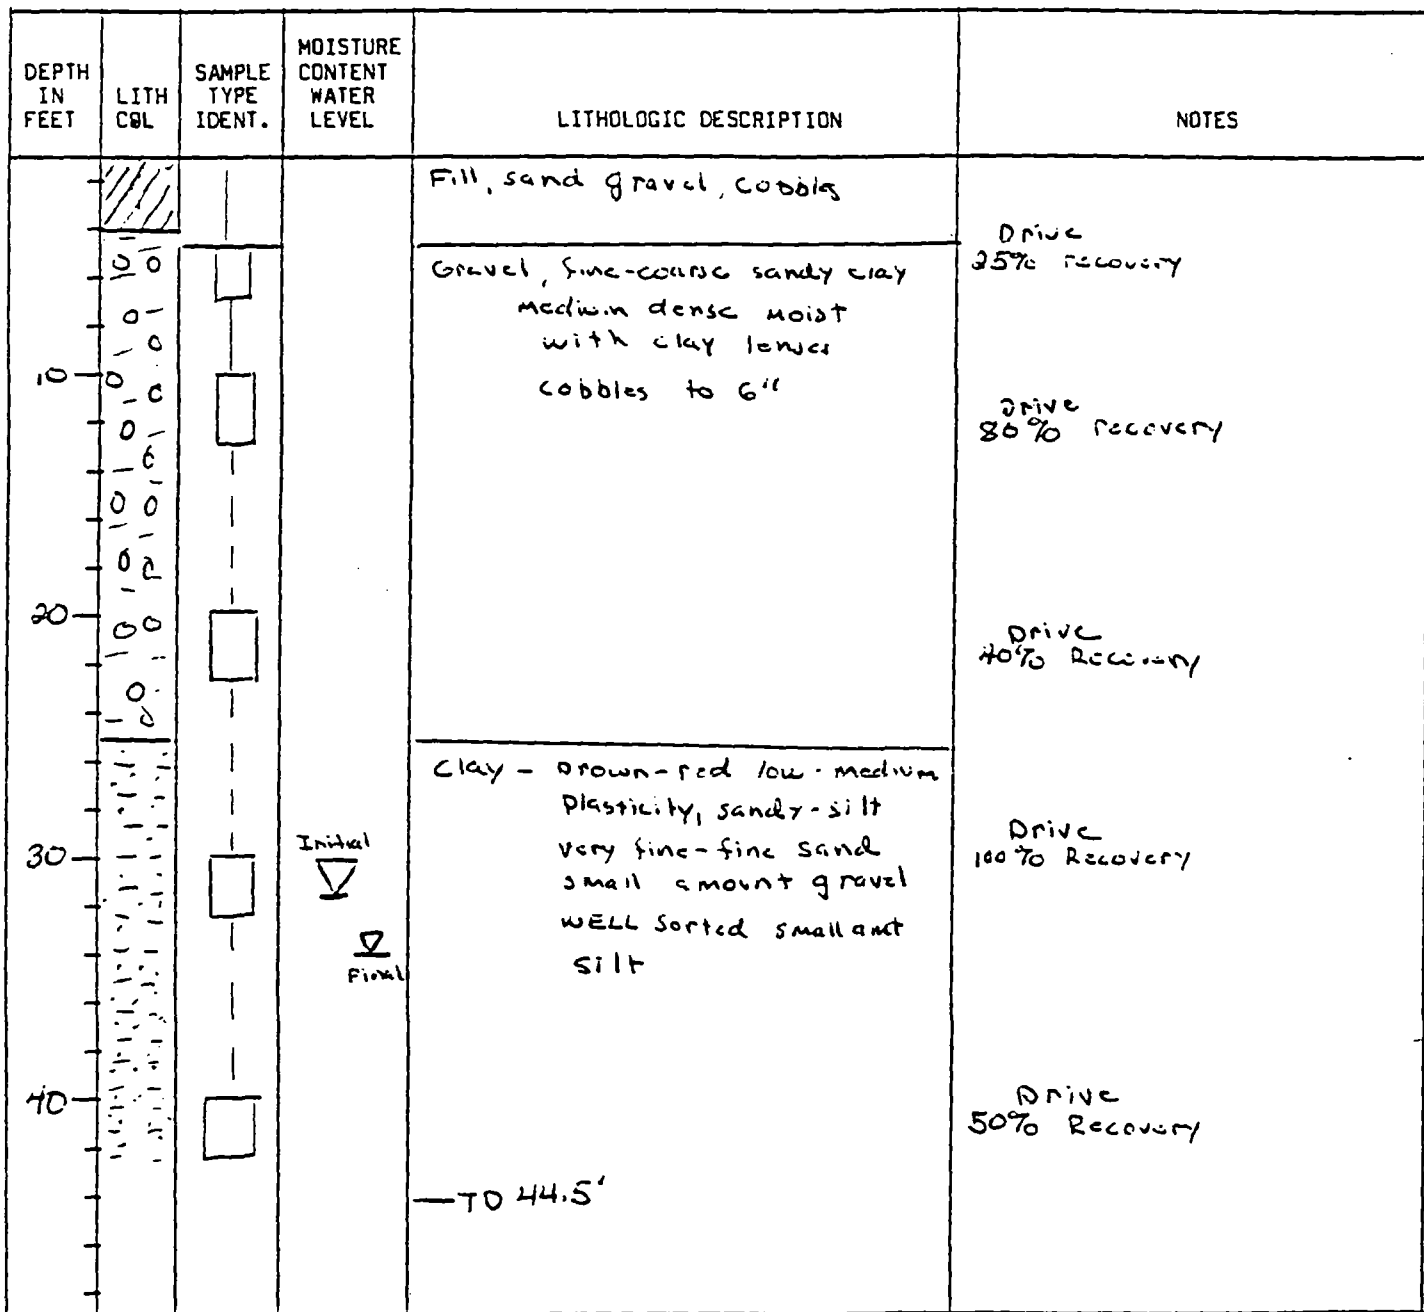 DEPTH IN FEET
LITH COL
SAMPLE TYPE IDENT.
MOISTURE CONTENT WATER LEVEL
LITHOLOGIC DESCRIPTION
NOTES
Fill, sand gravel, cobbles
Drive
25% recovery
Gravel, fine-coarse sandy clay
Medium dense Moist
with clay lenses
cobbles to 6"
10
Drive
80% recovery
20
Drive
40% Recovery
Clay - Brown-red low-medium
Plasticity, sandy-silt
very fine-fine sand
small amount gravel
WELL sorted small amt
silt
30
Initial
Final
Drive
100% Recovery
40
Drive
50% Recovery
TD 44.5'